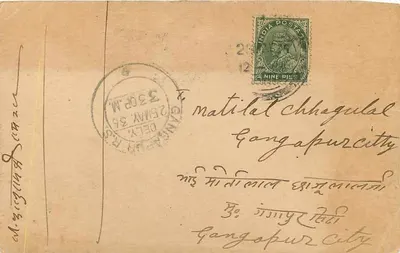 INDIA POSTAGE
NINE PIES
GANGAPUR R.S.
DELY.
25 MAY 35
3 30 P.M.
Matilal Chhagulal
Gangapurcitty
भाई मोतीलाल छगूलालजी
मु: गंगापुर सिटी
Gangapurcity